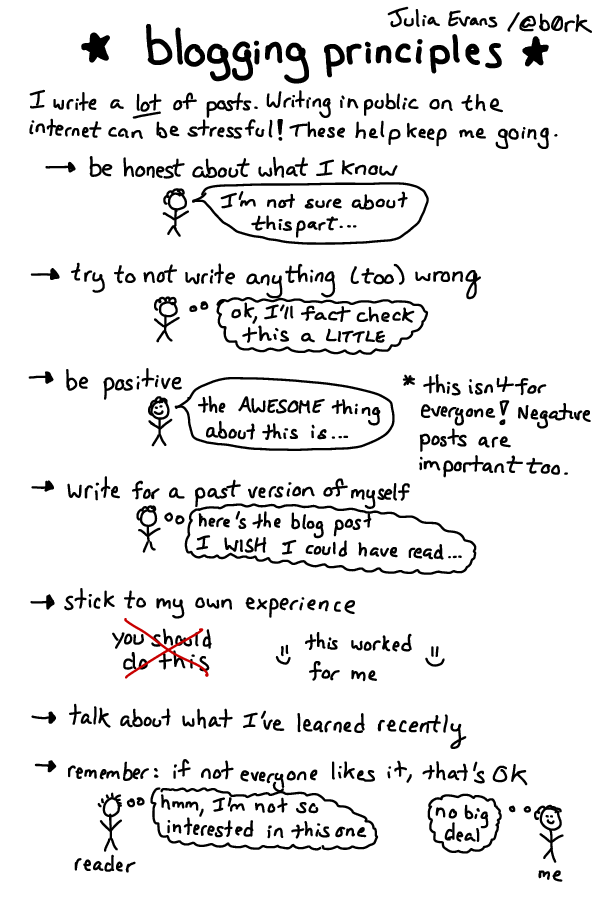 Julia Evans /@b0rk
★ blogging principles ★
I write a lot of posts. Writing in public on the
internet can be stressful! These help keep me going.
→ be honest about what I know
I'm not sure about
this part...
→ try to not write anything (too) wrong
ok, I'll fact check
this a LITTLE
→ be positive
the AWESOME thing
about this is...
* this isn't for
everyone! Negative
posts are
important too.
→ write for a past version of myself
here's the blog post
I WISH I could have read...
→ stick to my own experience
you should
do this
this worked
for me
→ talk about what I've learned recently
→ remember: if not everyone likes it, that's OK
hmm, I'm not so
interested in this one
reader
no big
deal
me